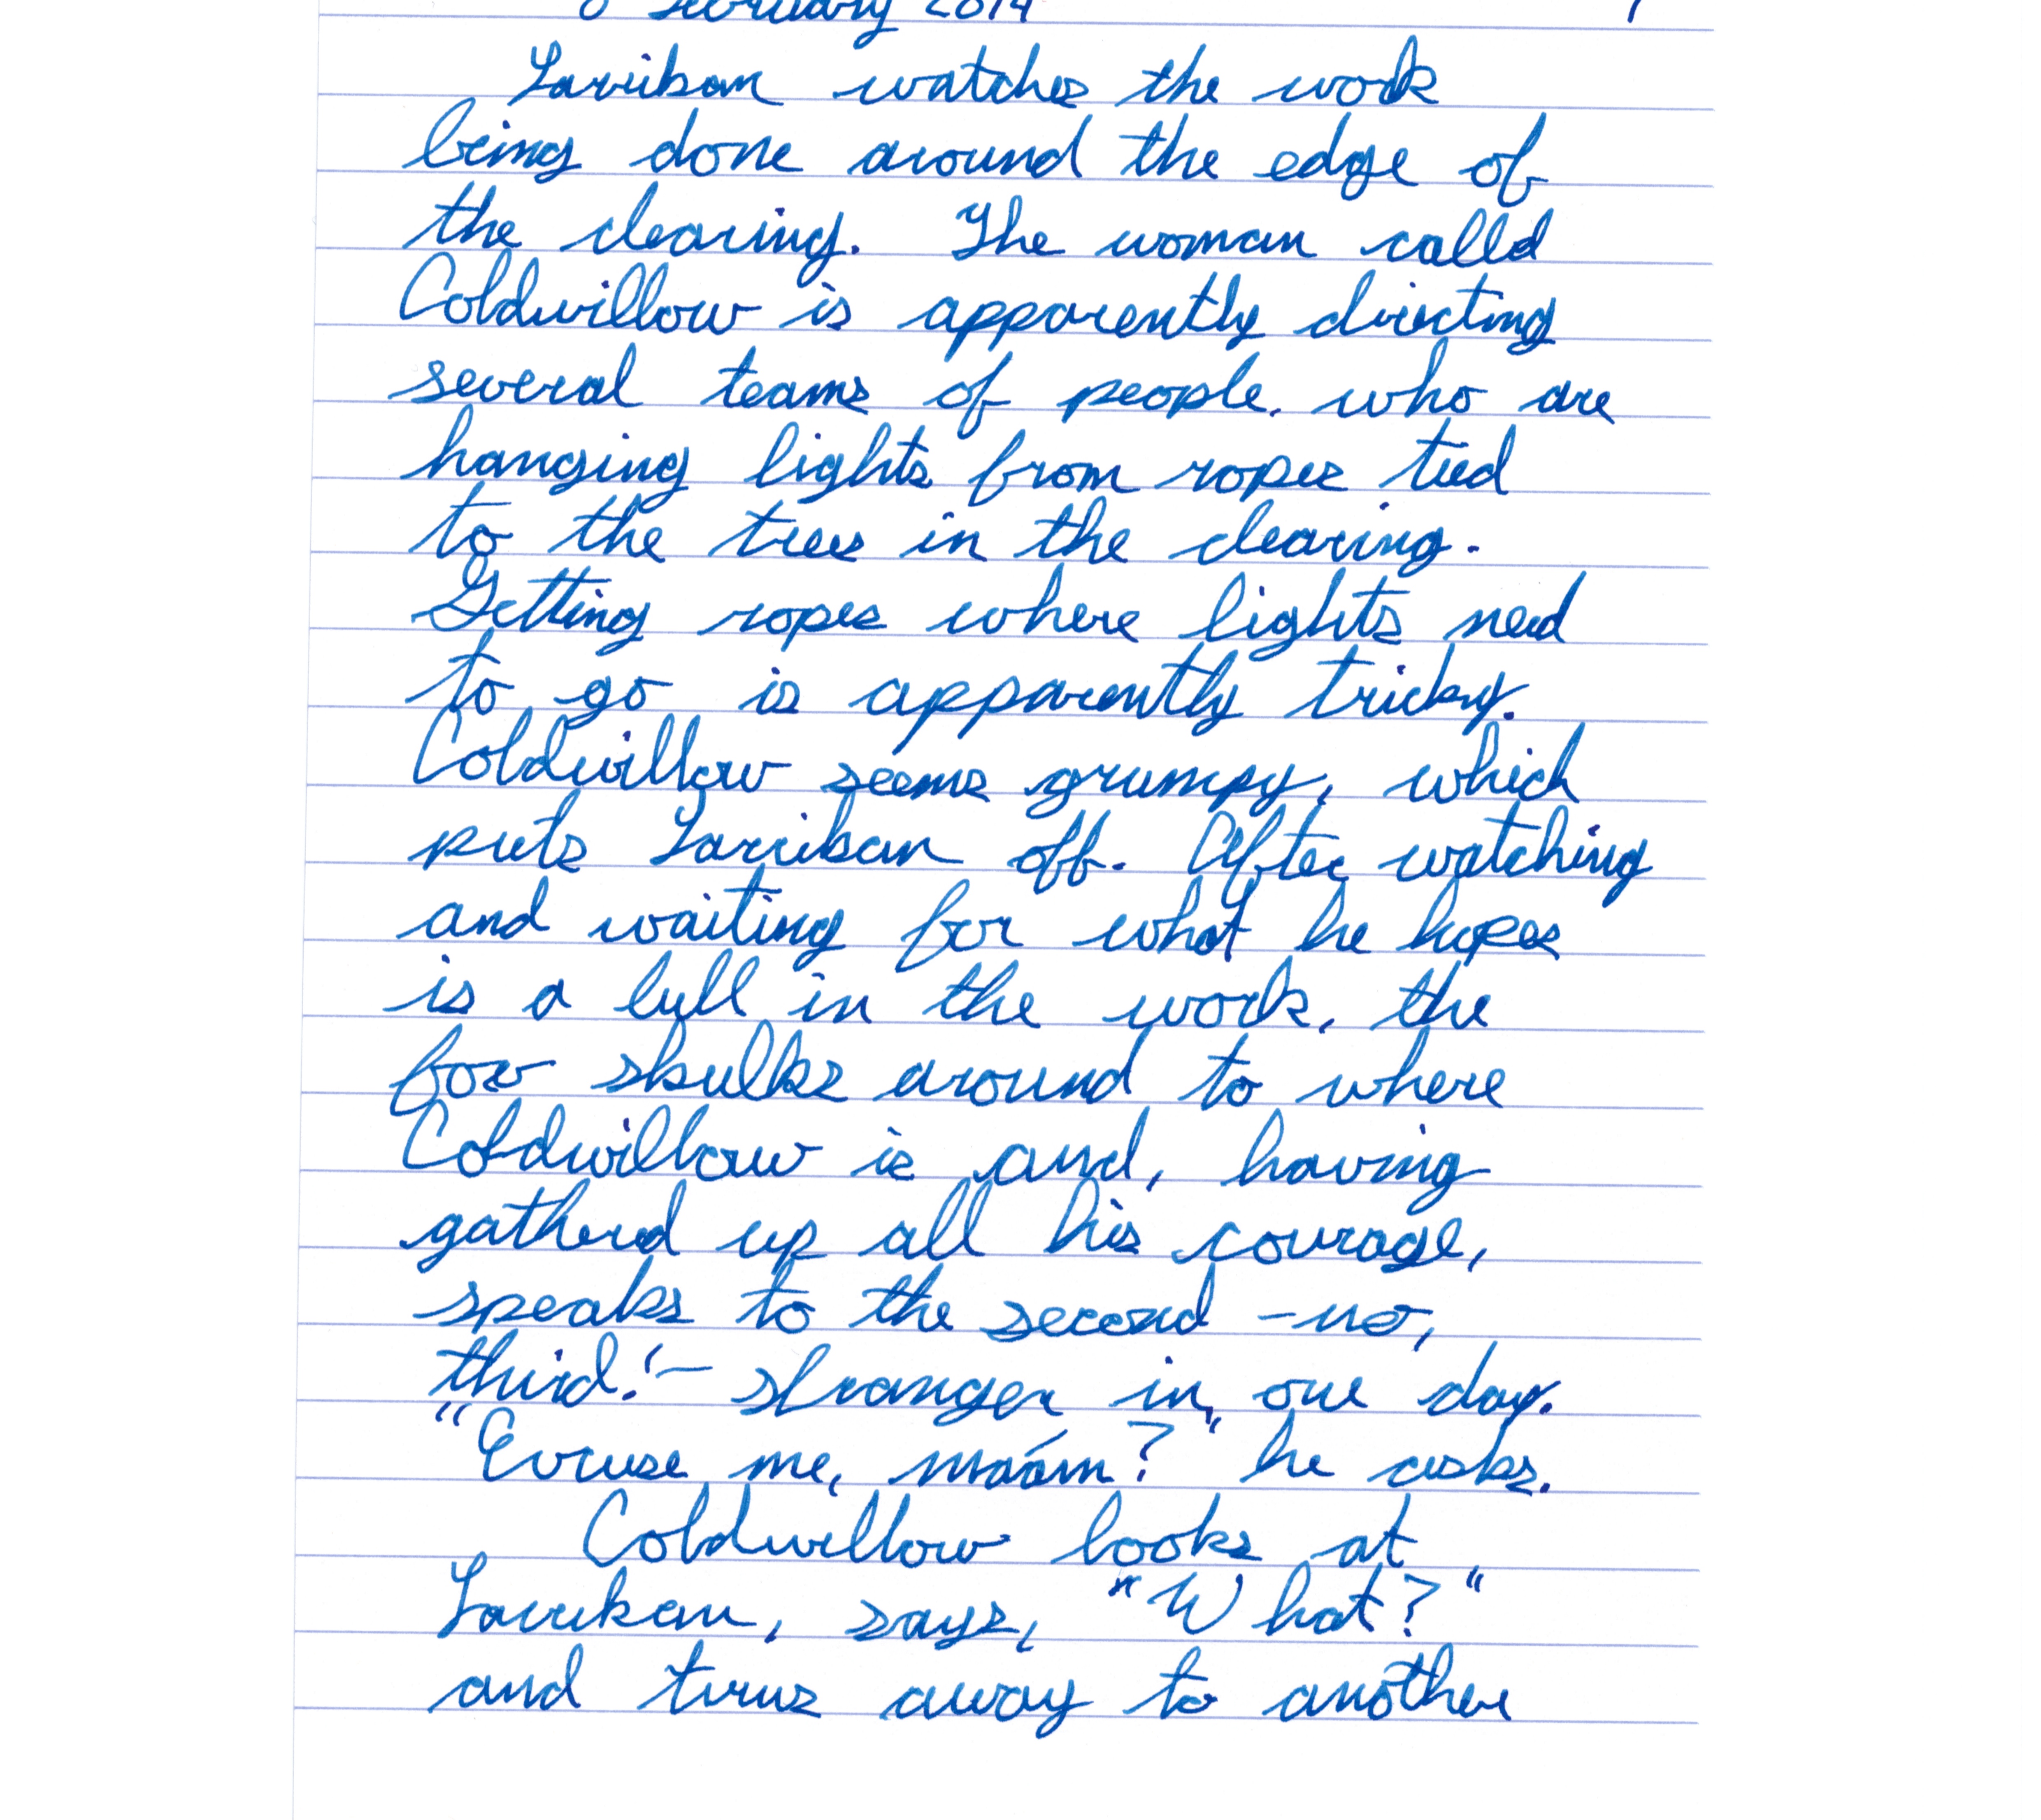 February 2014
Larikan watches the work
being done around the edge of
the clearing. The woman called
Coldwillow is apparently directing
several teams of people, who are
hanging lights from ropes tied
to the trees in the clearing.
Getting ropes where lights need
to go is apparently tricky.
Coldwillow seems grumpy, which
puts Larikan off. After watching
and waiting for what he hopes
is a lull in the work, the
fox skulks around to where
Coldwillow is and, having
gathered up all his courage,
speaks to the second - no,
third! - stranger in one day.
"Excuse me, ma'am?" he asks.
Coldwillow looks at
Larikan, says, "What?"
and turns away to another